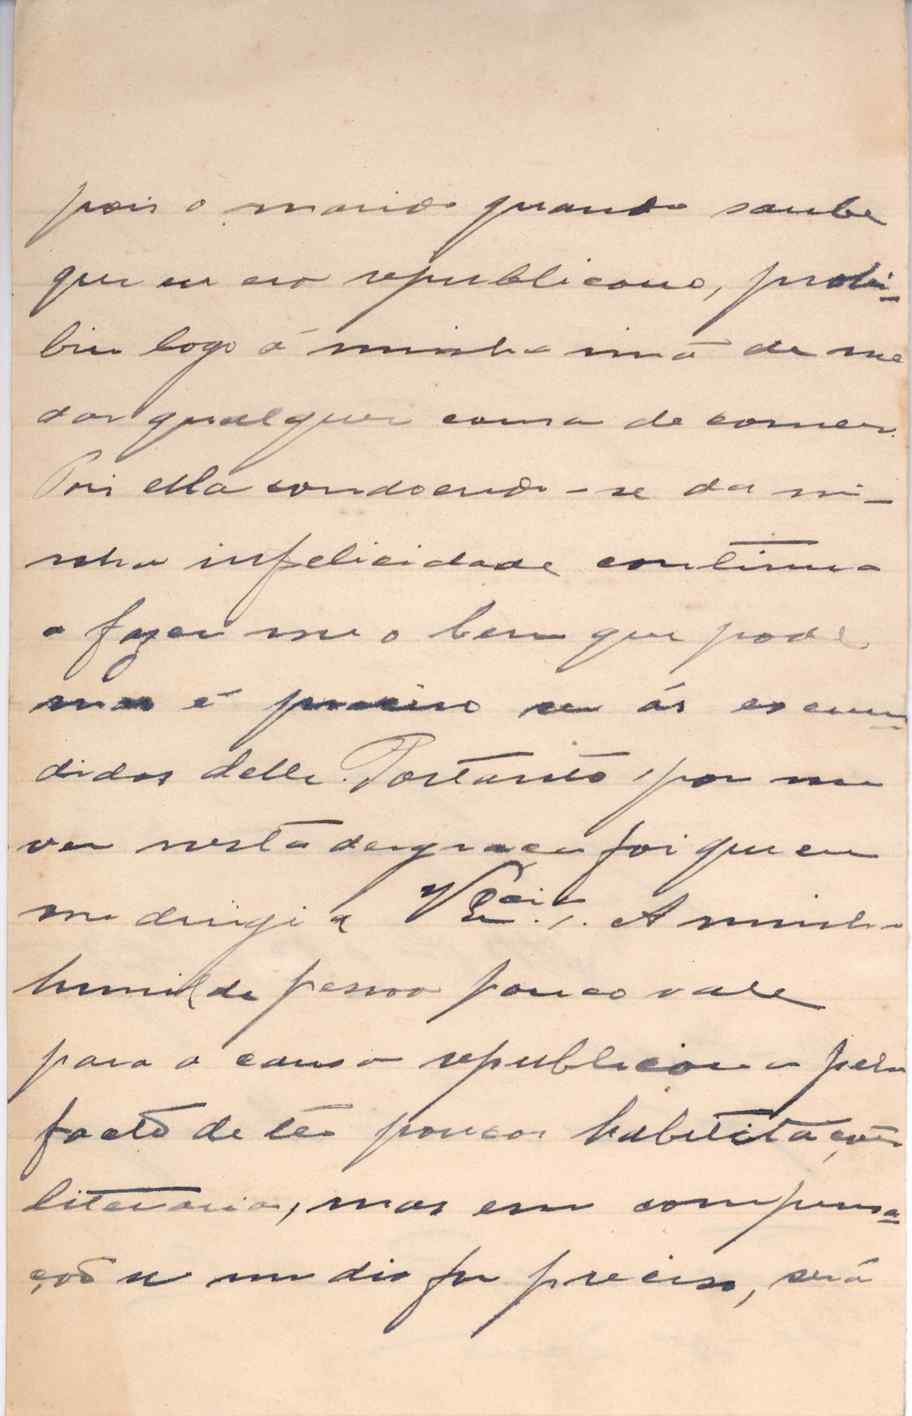 pois o marido quando soube
que eu era republicano, prohi-
biu logo á minha irmã de me
dar qualquer cousa de comer.
Pois ella condoendo-se da mi-
nha infelicidade continua
a fazer me o bem que pode,
mas é preciso ser ás escon-
didas delle. Portanto, por me
ver nesta desgraça foi que eu
me dirigi a V Ex.cia. A minha
humilde pessoa pouco vale
para a causa republicana pelo
facto de ter poucas habilitações
literarias, mas em compensa-
ção se um dia for preciso, será